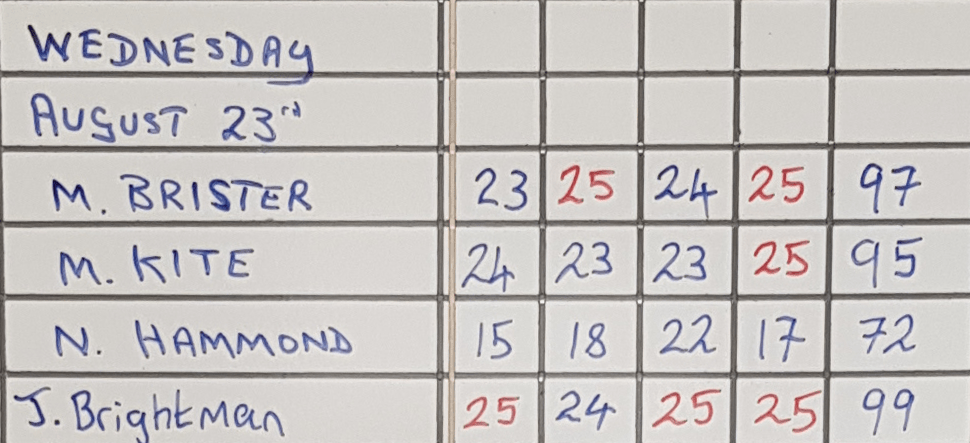 WEDNESDAY
AUGUST 23rd
M. BRISTER 23 25 24 25 97
M. KITE 24 23 23 25 95
N. HAMMOND 15 18 22 17 72
J. Brightman 25 24 25 25 99